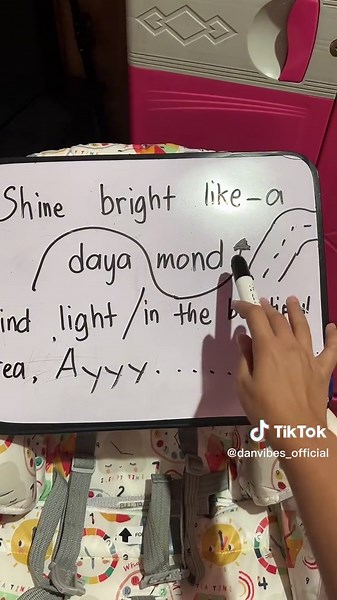 Shine bright like-a
daya mond
ind light/in the
ea, Ayyy......
TikTok
@danvibes_official